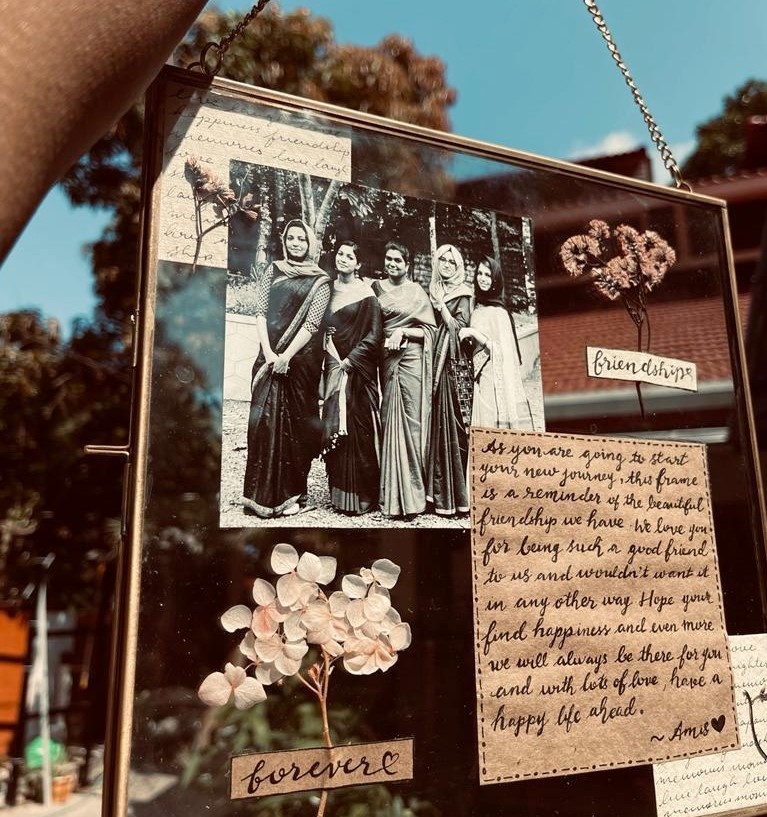 happiness friendship
memories live laugh
friendship
As you are going to start
your new journey, this frame
is a reminder of the beautiful
friendship we have. We love you
for being such a good friend
to us and wouldn't want it
in any other way Hope your
find happiness and even more
we will always be there for you
and with lots of love, have a
happy life ahead.
~ Amis
forever
live laugh love